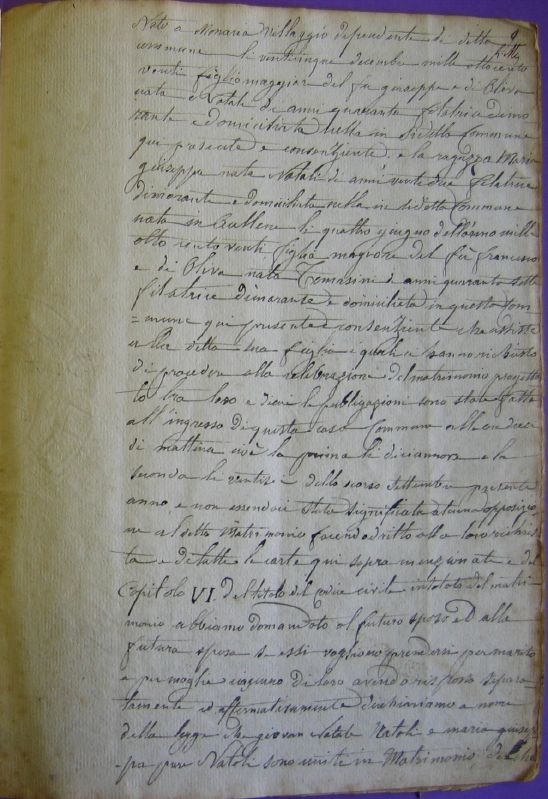 Nato a Monacia Villaggio dipendente di detta
commune li venticinque decembre mille ottocento
venti figlio maggiore del fu giuseppe e di Oliva
nata Natali di anni quaranta filatrice dimo
rante e domiciliata nella su detta Commune
qui presente e consenziente, e la ragazza Maria
giuseppa nata Natali di anni vente due filatrice
dimorante e domiciliata nella su detta Commune
nata in li quattro giugno dell'anno mille
otto cento venti figlia maggiore del fu francesco
e di Oliva nata Tomasini di anni quaranta sette
filatrice dimorante e domiciliata in questa Com
=mune qui presente e consenziente
alla detta sua figlia i quali ci hanno richiesto
di procedere alla celebrazione del matrimonio progetta
to tra loro e di cui le pubblicazioni sono state fatte
all'ingresso di questa casa Commune alle ore dieci
di mattina cioè la prima li diciannove e la
seconda li ventisei dello scorso settembre presente
anno e non essendoci stata significata alcuna opposizio
ne al detto Matrimonio facendo dritto alla loro richies
ta e di tutte le carte qui sopra menzionate e del
Capitolo VI del titolo del Codice civile intitolato del matri-
monio abbiamo domandato al futuro sposo ed alla
futura sposa se essi vogliono prendersi per marito
e per moglie ciascuno di loro avendo risposto separa
tamente ed affermativamente dichiariamo a nome
della legge che giovan Natale Natoli e maria giusep
pa pure Natoli sono uniti in Matrimonio, di che